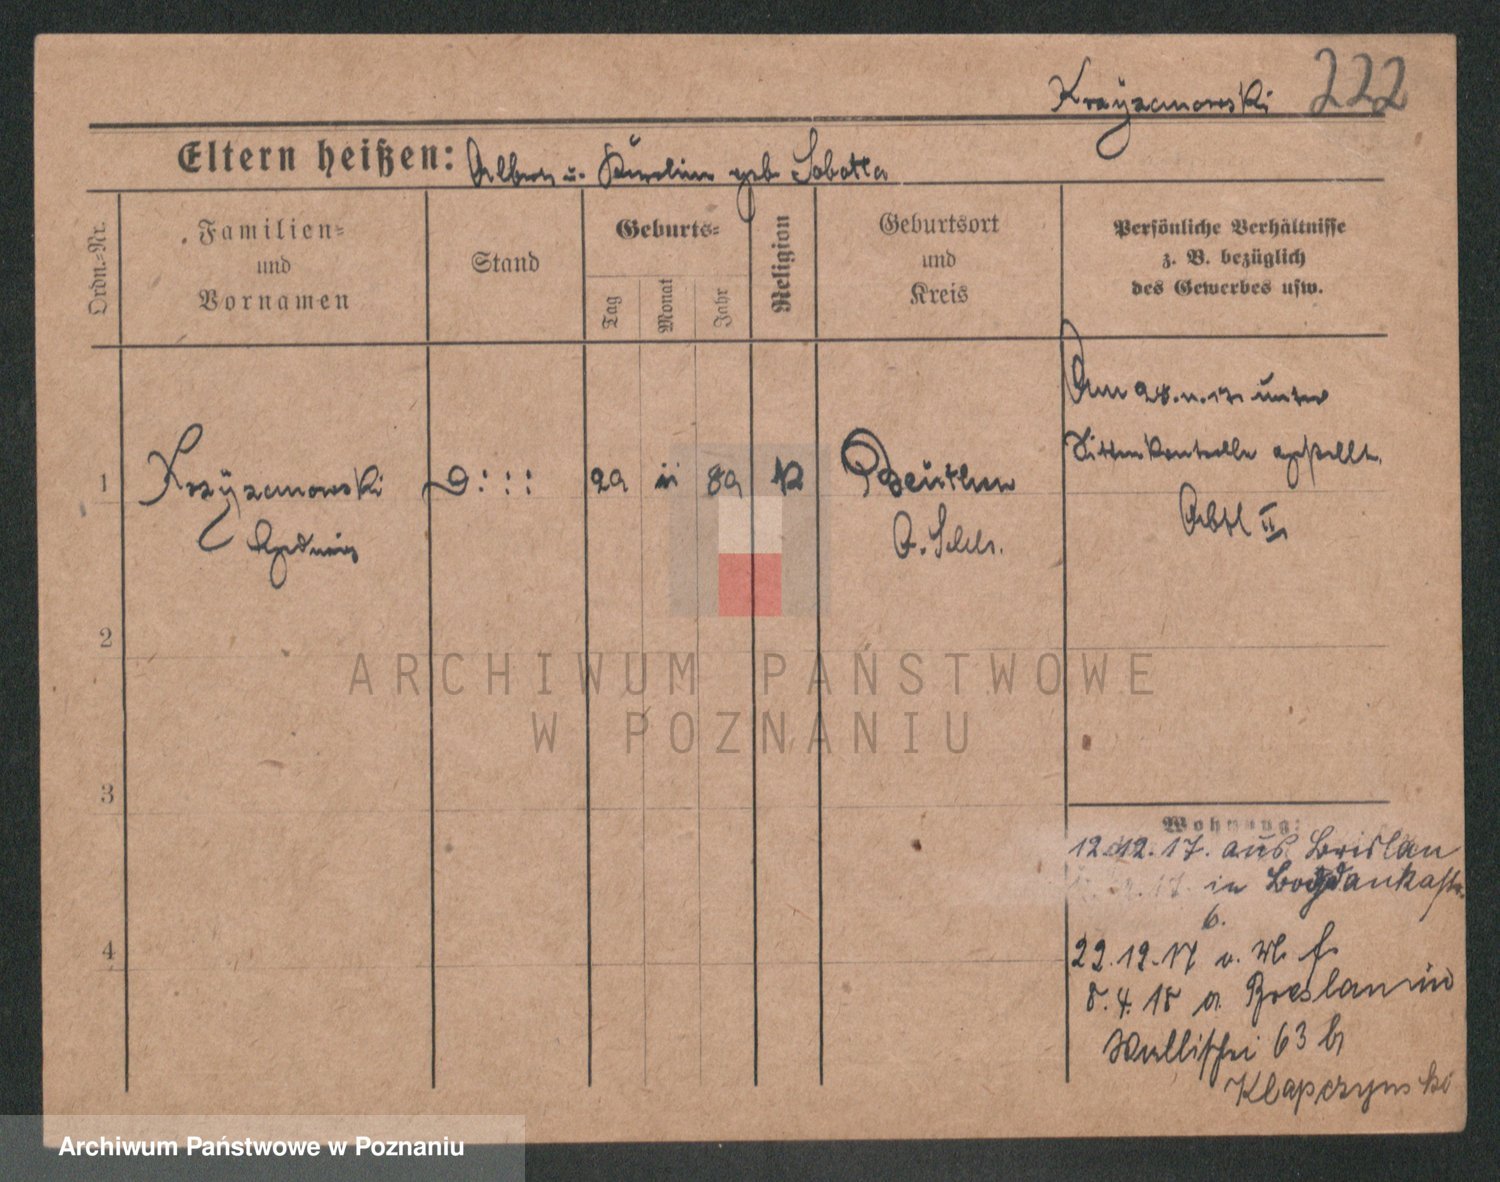 Krzyzanowski 222
Eltern heißen: Albert u. Karoline geb. Sobotta
Ordn.-Nr.
Familien-
und
Vornamen
Stand
Geburts-
Tag
Monat
Jahr
Religion
Geburtsort
und
Kreis
Persönliche Verhältnisse
z. B. bezüglich
des Gewerbes usw.
Am 28. 11. 17 unter
Sittenkontrolle gestellt.
Abtl II
1
Krzyzanowski
Hedwig
Beuthen
O. Schls.
2
3
4
Wohnung:
12.12.17. aus Breslau
in Bogdankastr.
6.
22.12.17 v. W. f.
8.4.18 a. Breslau in
Wallischei 63 b
Klapczynski
ARCHIWUM PAŃSTWOWE
W POZNANIU
Archiwum Państwowe w Poznaniu